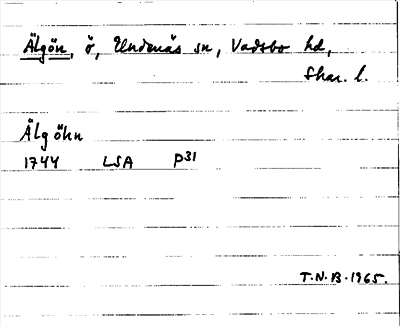 Älgön, ö, Undenäs sn, Vadsbo hd,
Skar. l.
Älg öhn
1744 LSA P31
T.N.B. 1965.